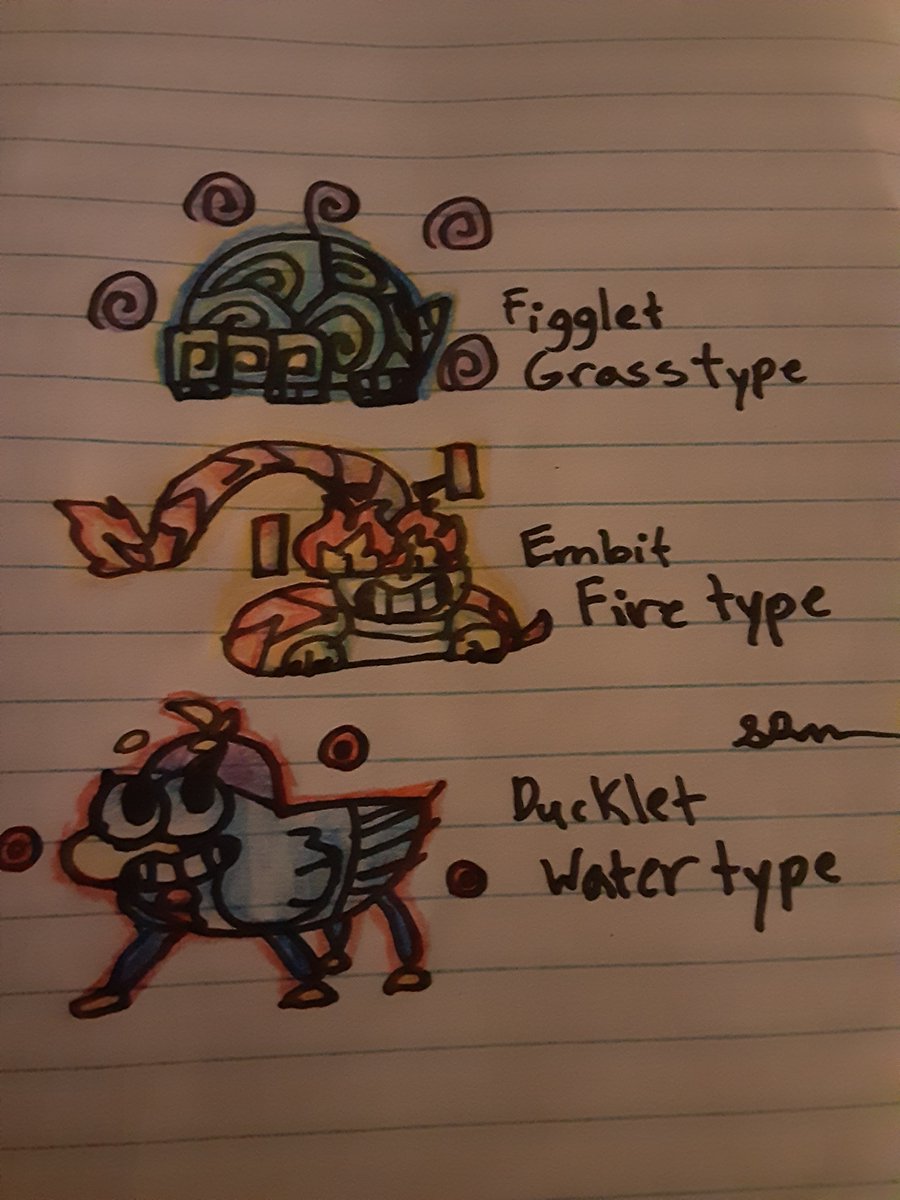 Figglet
Grass type
Embit
Fire type
sam
Ducklet
Water type